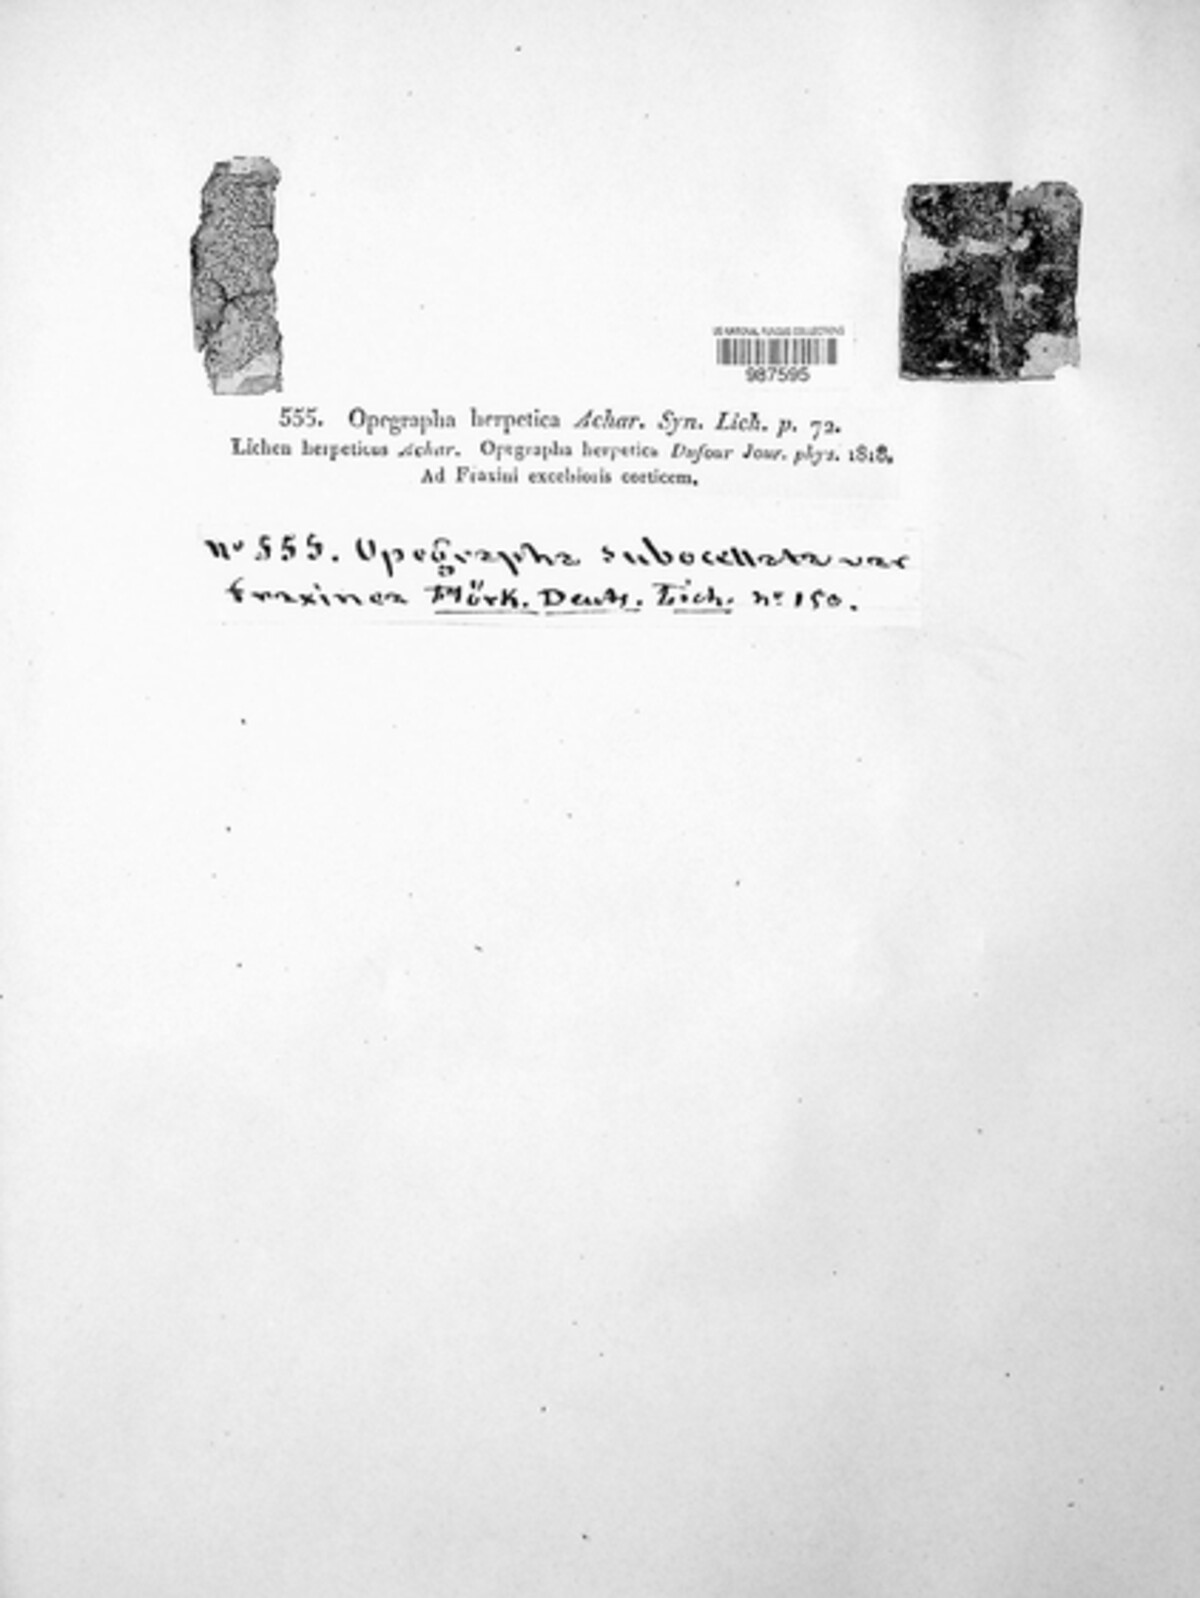 US NATIONAL FUNGUS COLLECTIONS
987595
555. Opegrapha herpetica Achar. Syn. Lich. p. 72.
Lichen herpeticus Achar. Opegrapha herpetica Dufour Jour. phys. 1818.
Ad Fraxini excelsioris corticem.
nº 555. Opegrapha subocellata var
fraxinea Flörk. Deuts. Lich. nº 150.